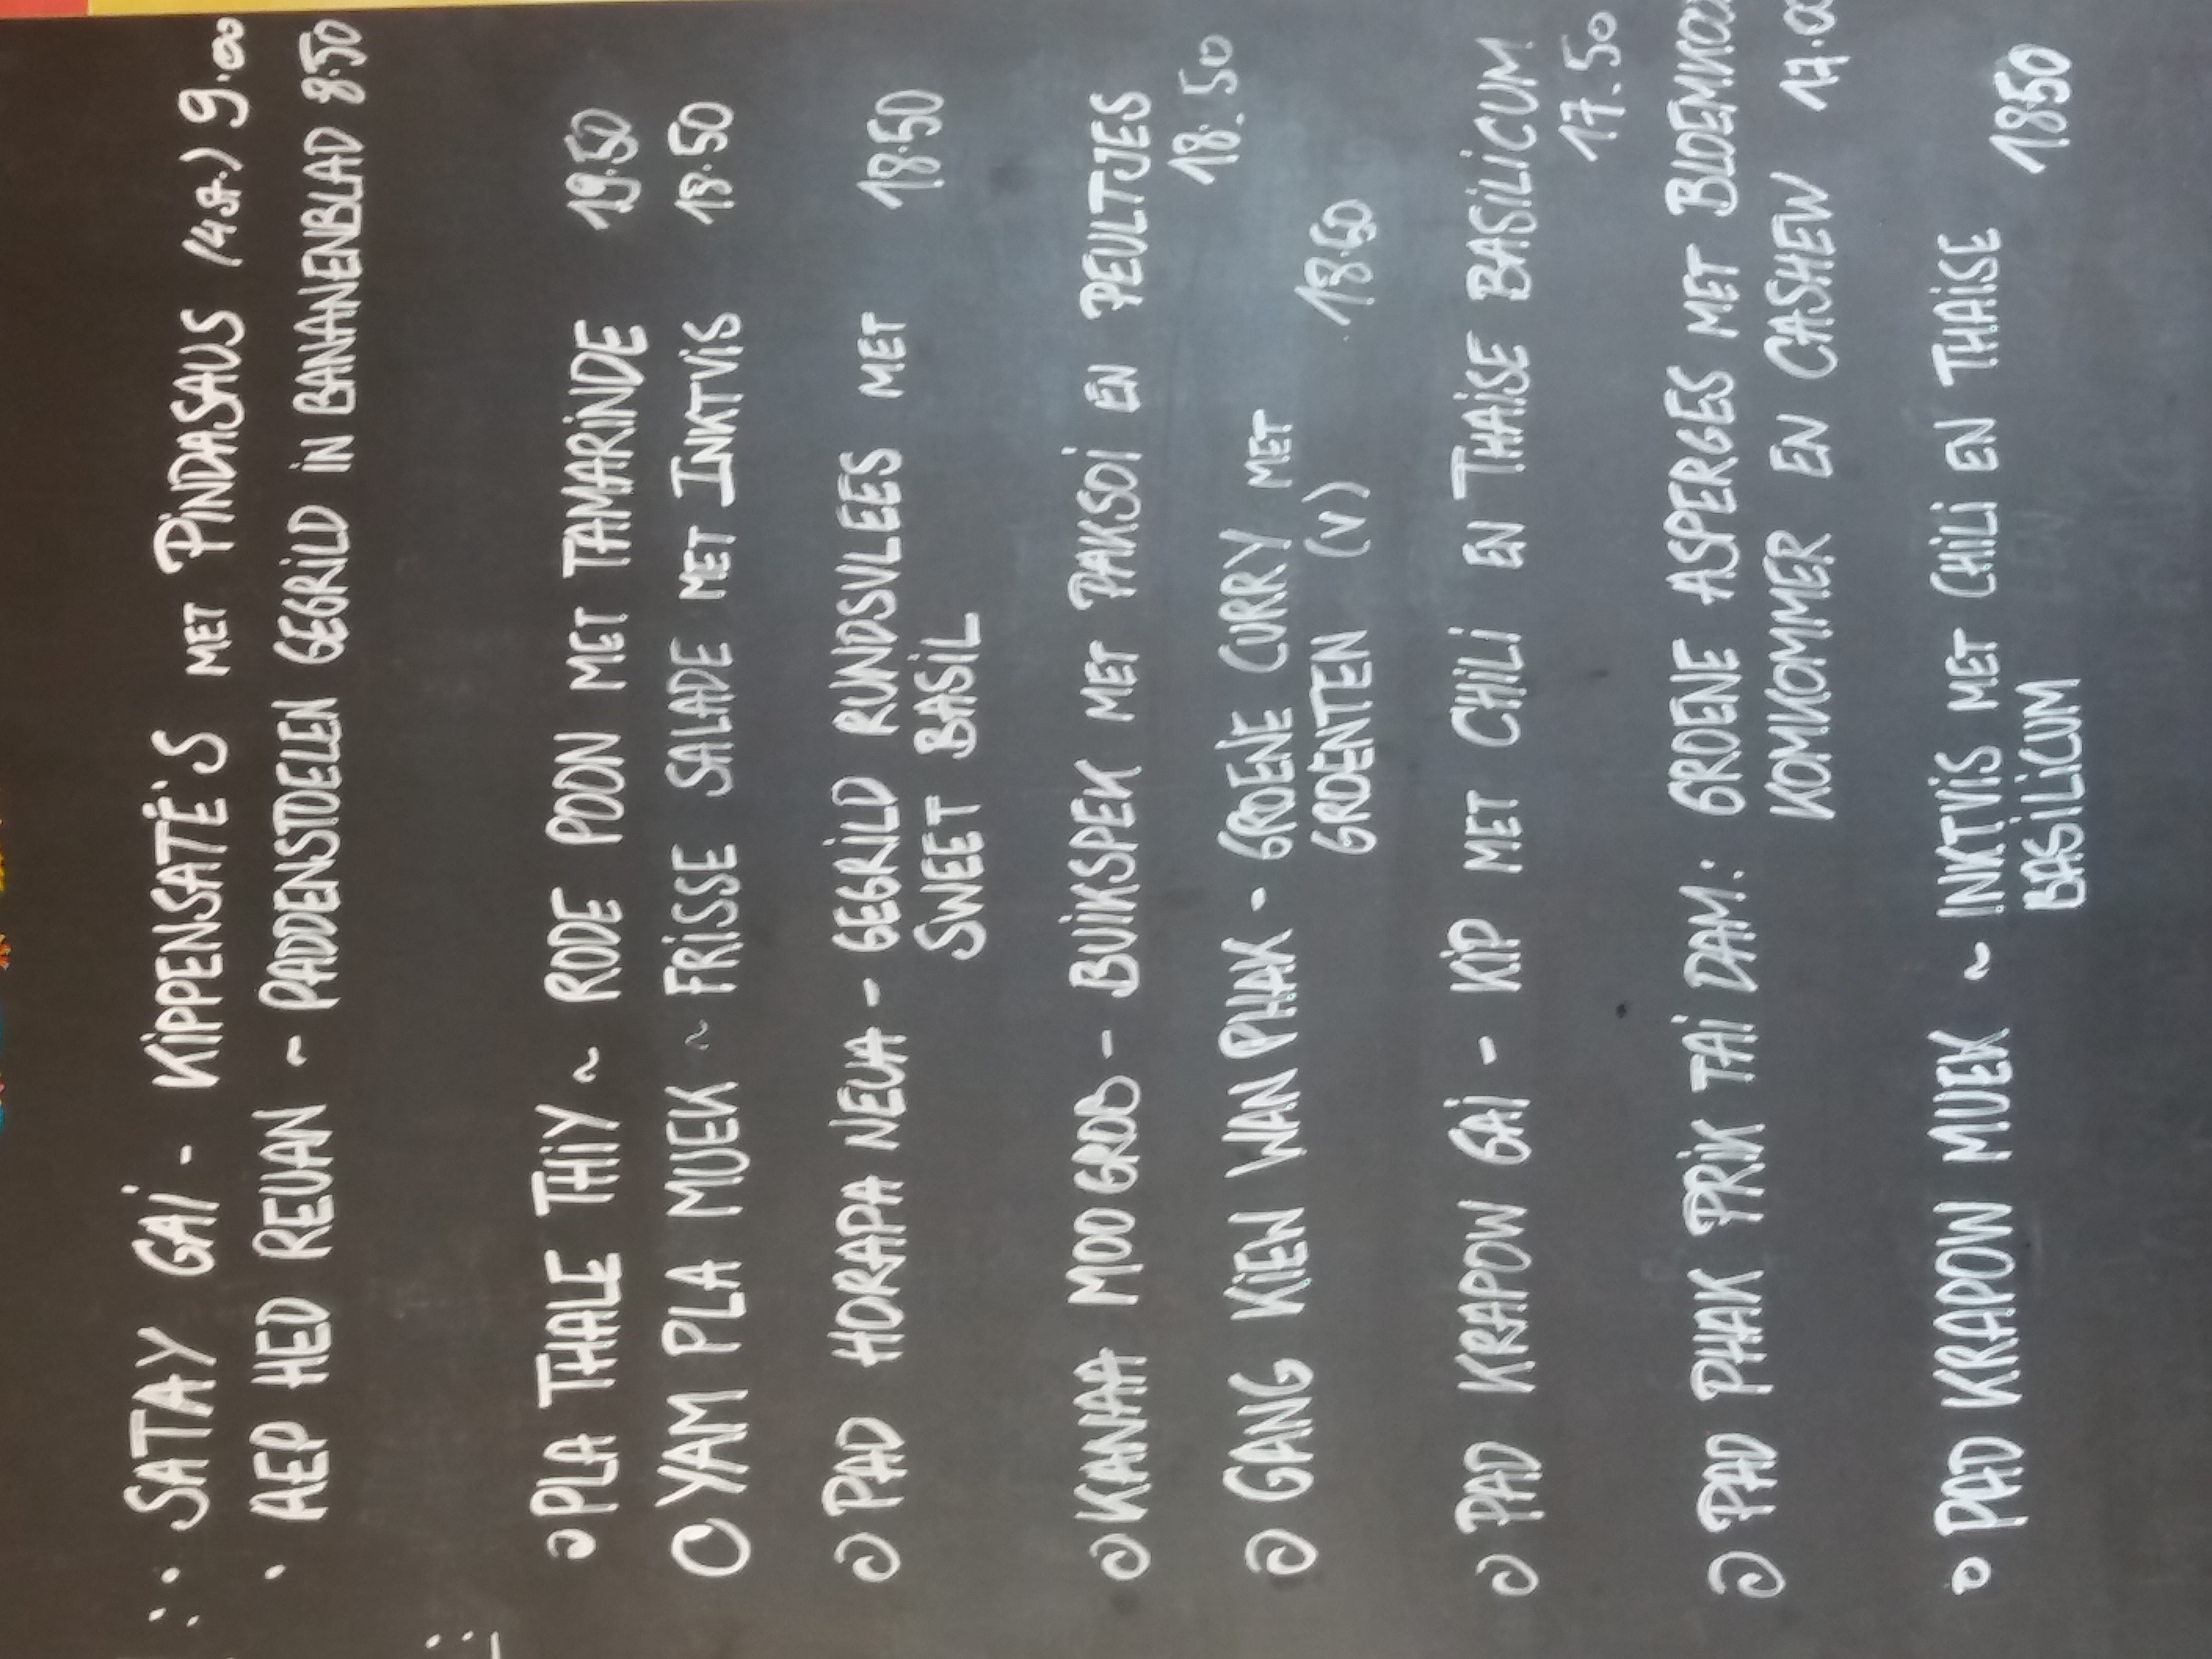 · SATAY GAI - KIPPENSATÉ'S MET PINDASAUS (4 ST.) 9.00
· AEP HED REUAN ~ PADDENSTOELEN GEGRILD IN BANANENBLAD 8.50
PLA THALE THIY ~ RODE POON MET TAMARINDE 19.50
YAM PLA MUEK ~ FRISSE SALADE MET INKTVIS 18.50
PAD HORAPA NEUA - GEGRILD RUNDSVLEES MET 18.50
SWEET BASIL
KANAA MOO GROB - BUIKSPEK MET PAKSOI EN PEULTJES
18.50
GANG KIEW WAN PHAK - GROENE CURRY MET
GROENTEN (V) 18.50
PAD KRAPOW GAI - KIP MET CHILI EN THAISE BASILICUM
17.50
PAD PHAK PRIK TAI DAM: GROENE ASPERGES MET
KOMKOMMER EN CASHEW 17.00
PAD KRAPOW MUEK ~ INKTVIS MET CHILI EN THAISE 18.50
BASILICUM